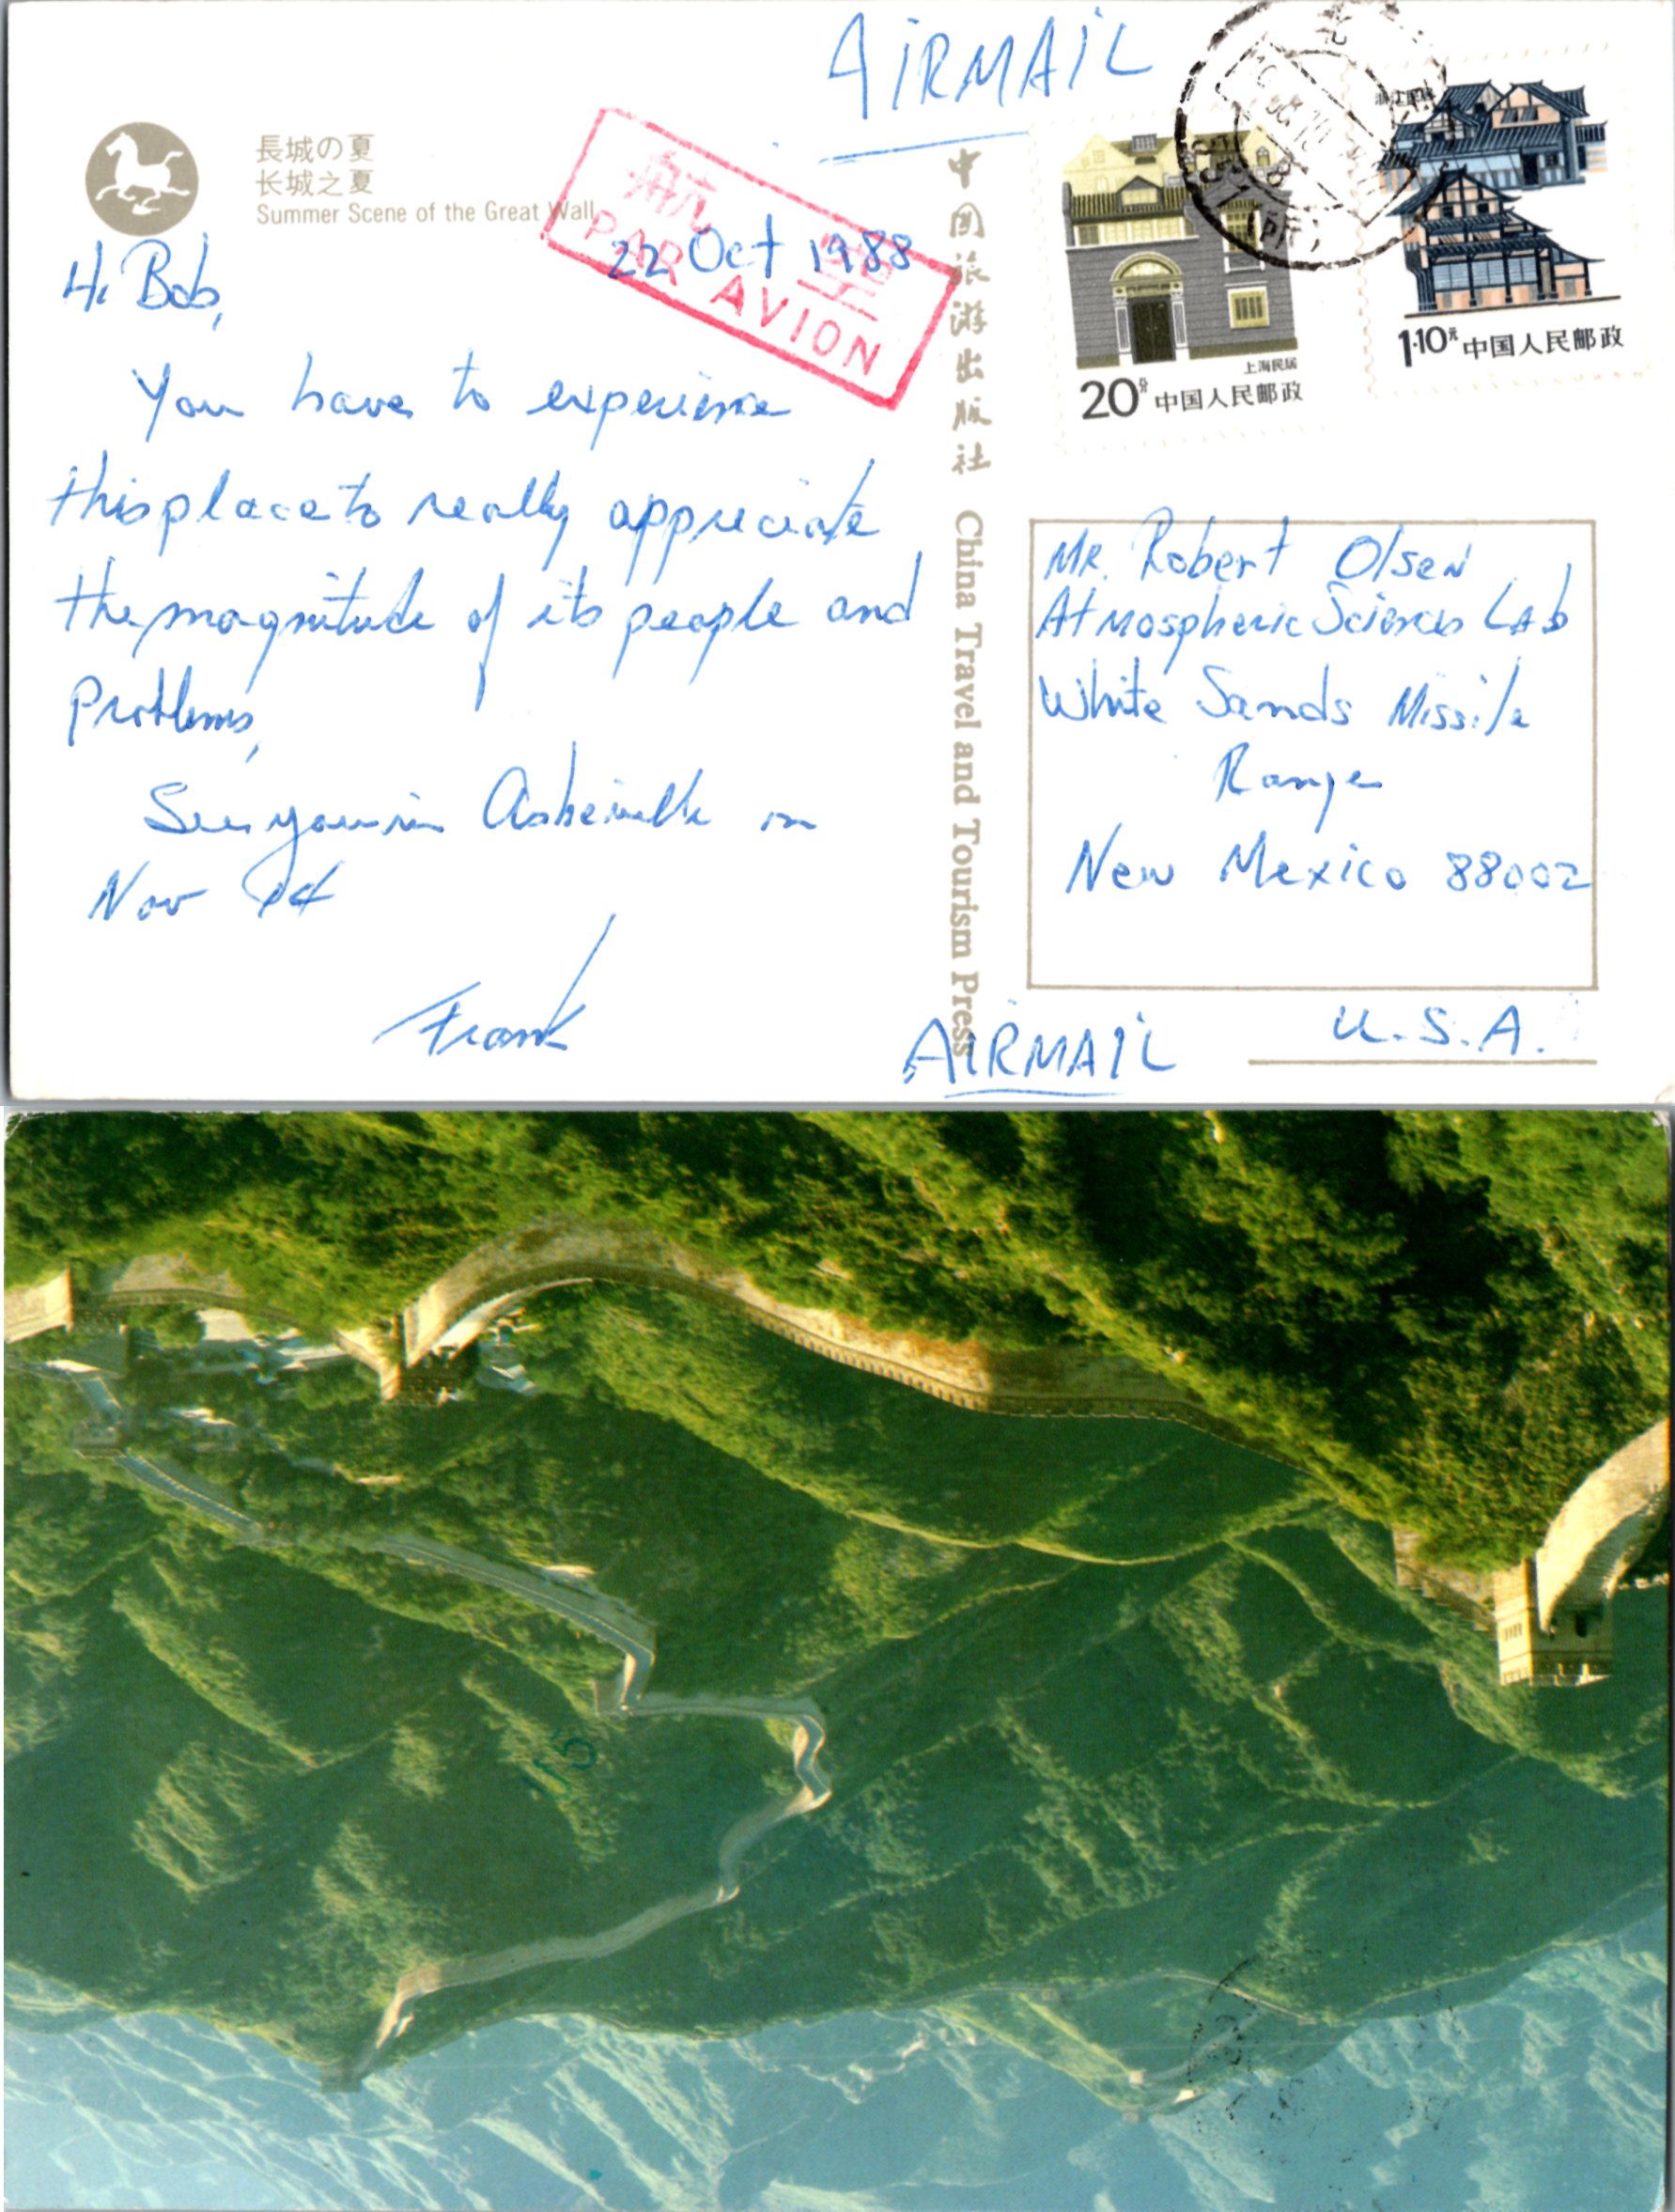 AIRMAIL
長城の夏
长城之夏
Summer Scene of the Great Wall
航空
PAR AVION
22 Oct 1988
Hi Bob,
You have to experience
this place to really appreciate
the magnitude of its people and
Problems,
See you in Asheville in
Nov
Frank
中国旅游出版社 China Travel and Tourism Press
上海民居
20分 中国人民邮政
浙江民居
1.10元 中国人民邮政
Mr. Robert Olsen
Atmospheric Sciences Lab
White Sands Missile
Range
New Mexico 88002
U.S.A.
AIRMAIL
115